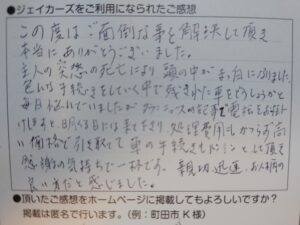 ●ジェイカーズをご利用になられたご感想
この度はご面倒な事を解決して頂き
本当にありがとうございました。
主人の突然の死亡により頭の中が真っ白になりました。
色んな手続きをしていく中で残された車をどうしようかと
毎日悩んでいましたが タウンニュースの記事で電話をお掛け
けしますと、明くる日には来て下さり、処理費用もかからず高
い価格で引き取って車の手続きもきちんとして頂き
感謝の気持ちで一杯です。親切、迅速、お人柄の
良い方だと感じました。
●頂いたご感想をホームページに掲載してもよろしいですか？
掲載は匿名で行います。（例：町田市 K 様）